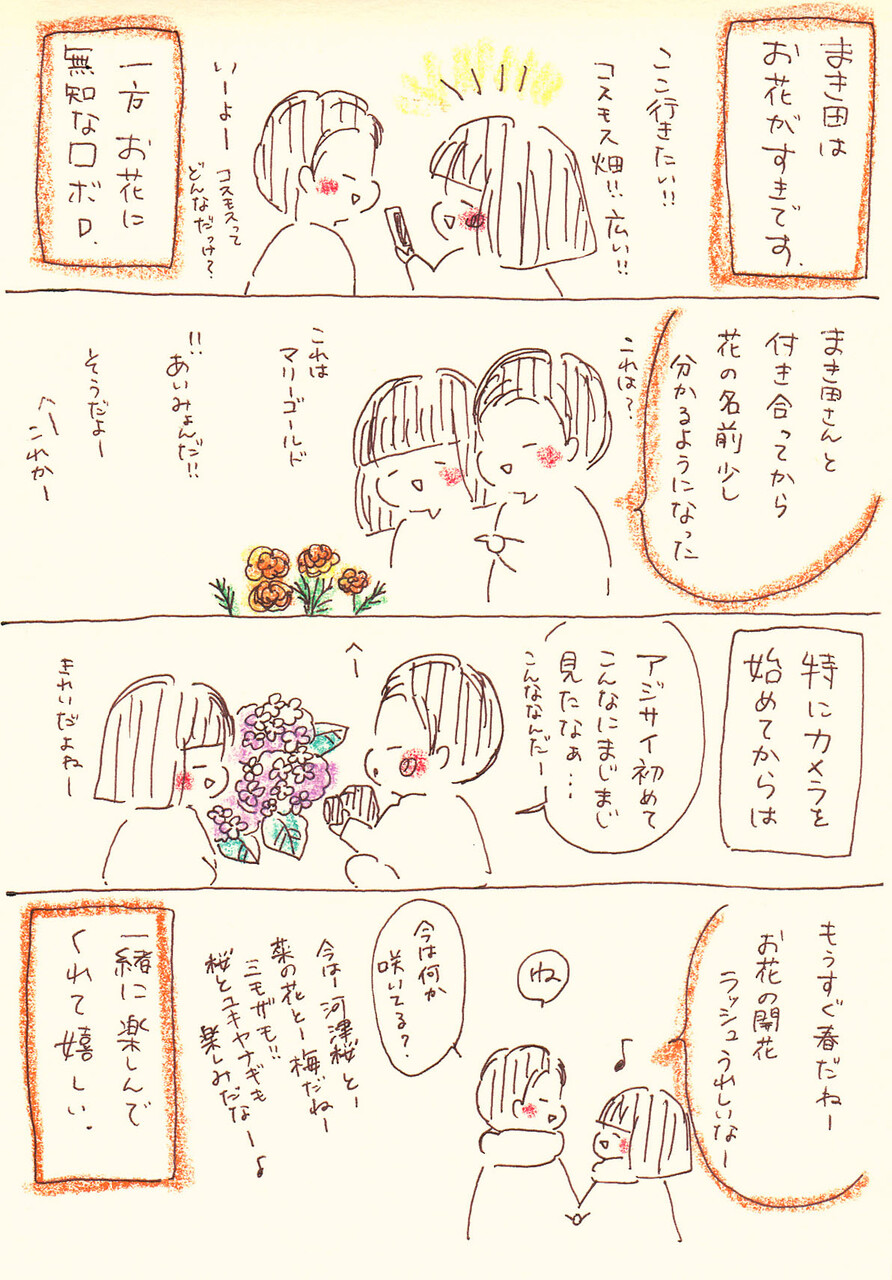 まき田は
お花がすきです.
ここ行きたい!!
コスモス畑!! 広い!!
いーよー
コスモスって
どんなだっけ?
一方 お花に
無知なロボD.
まき田さんと
付き合ってから
花の名前少し
分かるようになった
これは?
これは
マリーゴールド
!!
あいみょんだ!!
そうだよー
へー これかー
特にカメラを
始めてからは
アジサイ初めて
こんなにまじまじ
見たなぁ…
こんななんだー
へー
きれいだよねー
もうすぐ春だねー
お花の開花
ラッシュうれしいなー
ね
今は何か
咲いてる?
今はー河津桜とー
菜の花とー梅だねー
ミモザも!!
桜とユキヤナギも
楽しみだなー♪
一緒に楽しんで
くれて嬉しい.